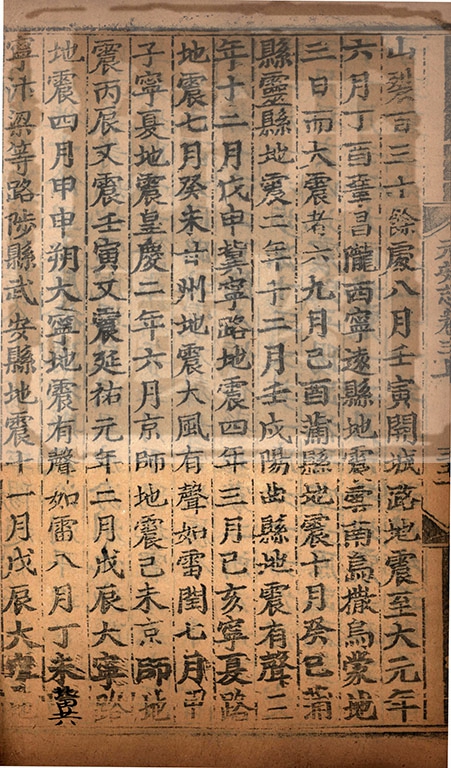 山裂百三十餘處八月壬寅開城路地震至大元年
六月丁酉鞏昌隴西寧遠縣地震雲南烏撒烏蒙地
三日而大震者六九月己酉蒲縣地震十月癸巳蒲
縣靈縣地震三年十二月壬戌陽曲縣地震有聲三
年十二月戊申冀寧路地震四年三月己亥寧夏路
地震七月癸未甘州地震大風有聲如雷閏七月甲
子寧夏地震皇慶二年六月京師地震己未京師地
震丙辰又震壬寅又震延祐元年二月戊辰大寧路
地震四月甲申朔大寧地震有聲如雷八月丁未冀
寧汴梁等路陟縣武安縣地震十一月戊辰大寧地